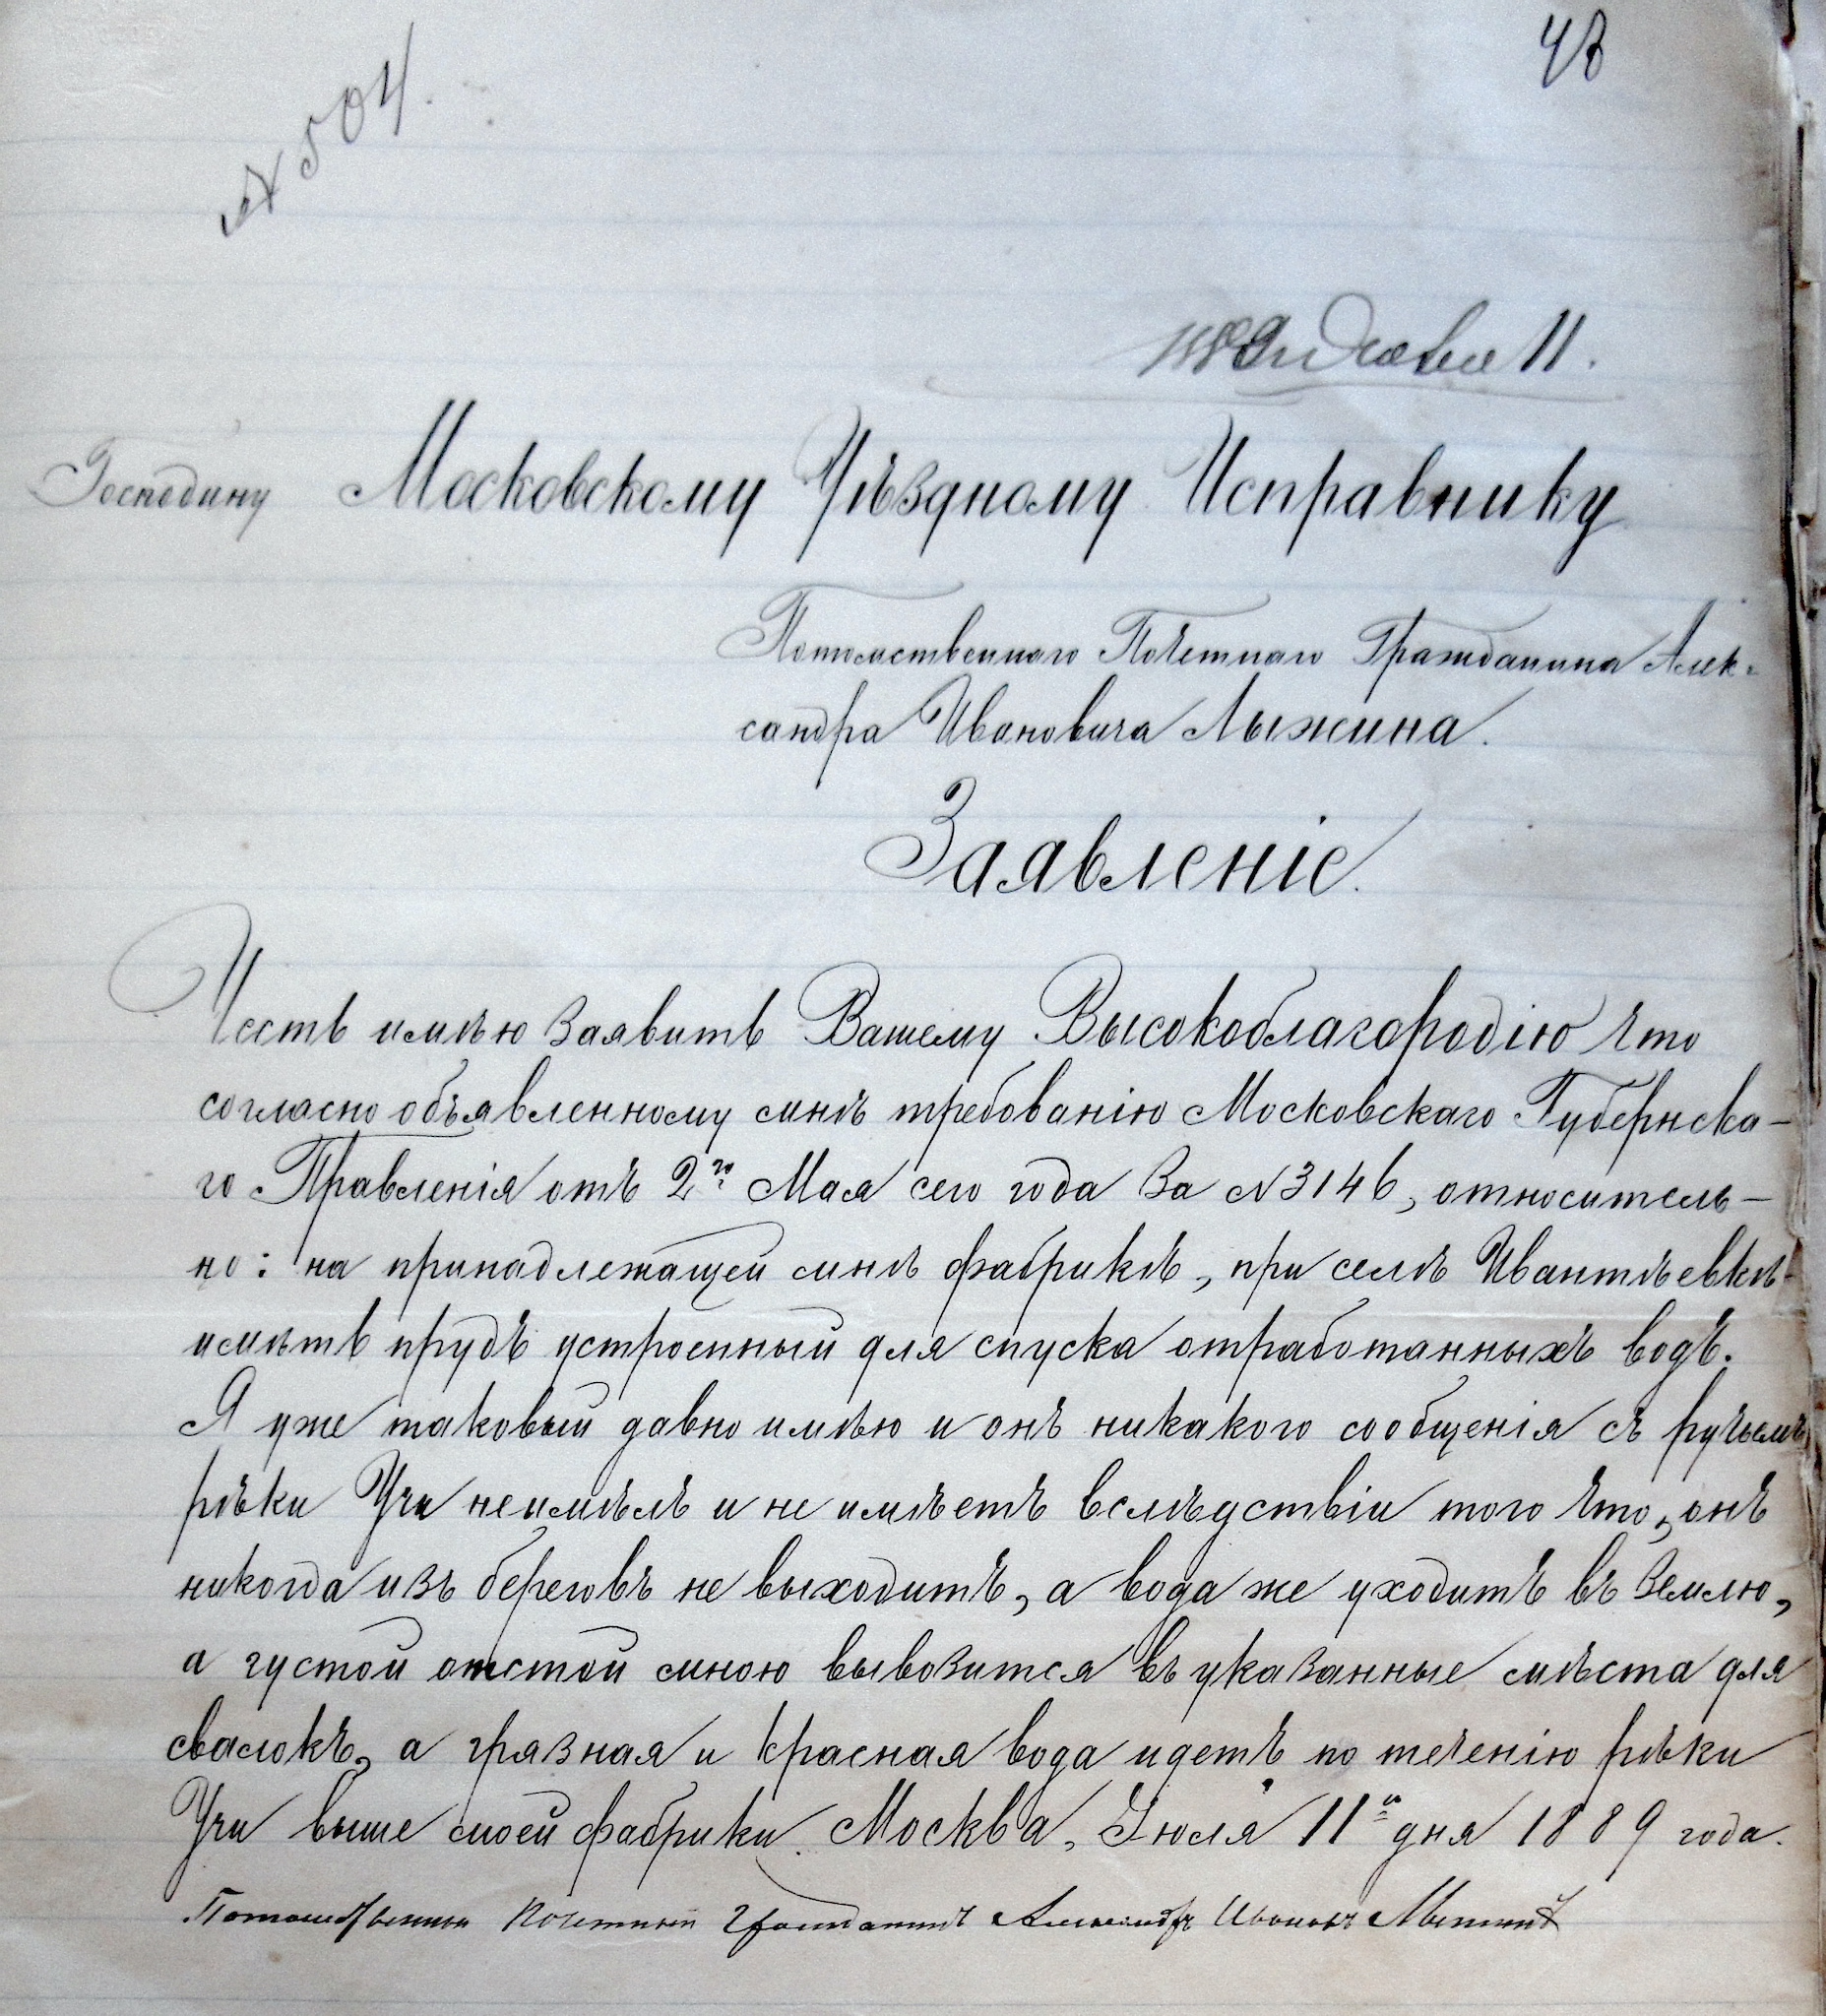 48
№ 504.
1889 Июля 11.
Господину Московскому Уѣздному Исправнику
Потомственнаго Почетнаго Гражданина Алек-
сандра Ивановича Лыжина.
Заявленіе.
Честь имѣю заявить Вашему Высокоблагородію что
согласно объявленному мнѣ требованію Московскаго Губернска-
го Правленія отъ 2го Мая сего года за №3146, относитель-
но: на принадлежащей мнѣ фабрикѣ, при селѣ Ивантѣевкѣ
имѣть прудъ устроенный для спуска отработанныхъ водъ.
Я уже таковый давно имѣю и онъ никакого сообщенія съ ручьемъ
рѣки Учи неимѣлъ и не имѣетъ вслѣдствіи того что, онъ
никогда изъ береговъ не выходитъ, а вода же уходитъ въ землю,
а густой отстой мною вывозится въ указанные мѣста для
свалокъ, а грязная и красная вода идетъ по теченію рѣки
Учи выше моей фабрики. Москва, Іюля 11го дня 1889 года.
Потомственный Почетный Гражданинъ Александръ Ивановъ Лыжинъ